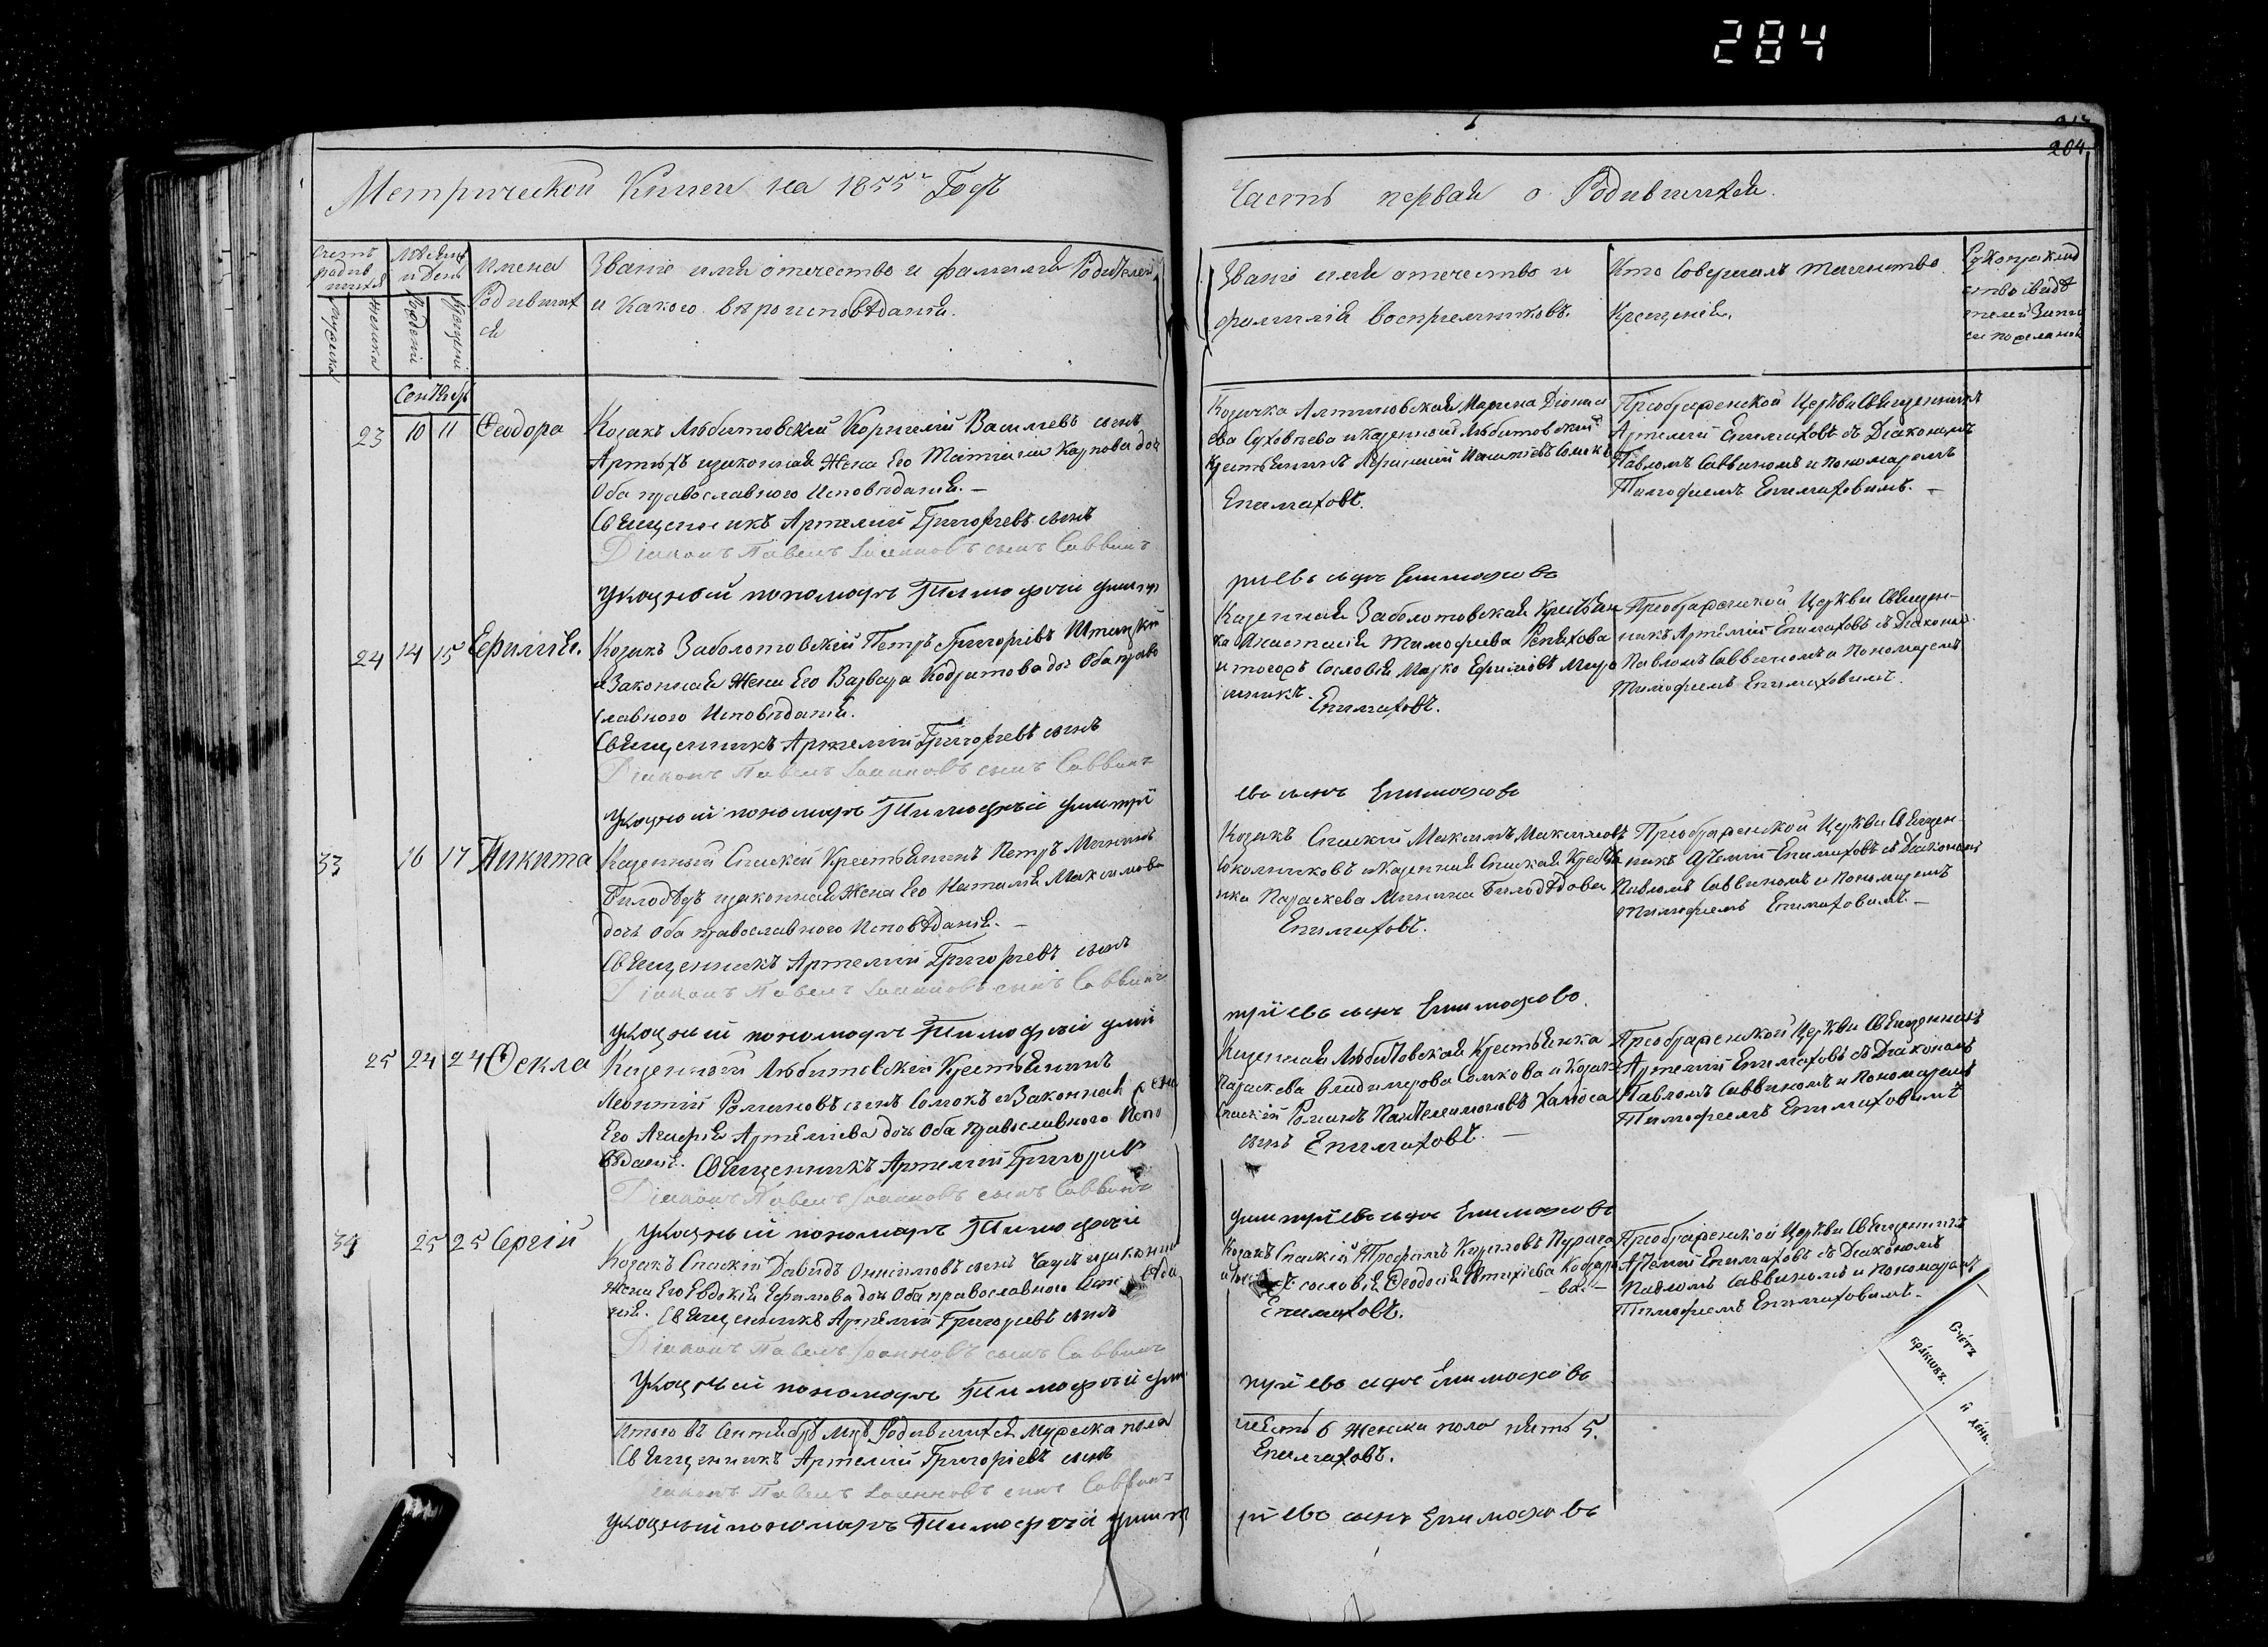 284
204
Метрической Книги на 1855й Годъ
Часть первая о Родившихся.
Счетъ родив шихся
мужеска
женска
Мѣсяцъ и День
Рождені
Крещені
Имена
Родившихся
Званіе имя отечество и фамилія Родителей
и какого вѣроисповѣданія.
Званіе имя отечество и
фамилія воспріемниковъ.
Кто совершалъ таинство
Крещенія.
Рукоприклад
ство свидѣ
телей Запи
си по желанію
Сентябрь
23 10 11 Феодора
Козакъ Любитовскій Корнилій Василіевъ сынъ
Артюхъ изаконная Жена Его Татіана Карпова доч
Оба православного Исповѣданія. —
Священникъ Артемій Григоріевъ сынъ
Діаконъ Павелъ Іоанновъ сынъ Саввинъ
указный пономарь Тимофѣй Дмит
Козачка Марина Діониси
ева Суховѣева иказенный Любитовскій
Крестьянинъ Сомокъ
Епимаховъ.
ріевъ сынъ Епимаховъ
Преображенской Церкви Священникъ
Артемій Епимаховъ съ Діакономъ
Павломъ Саввиномъ и Пономаремъ
Тимофеемъ Епимаховымъ. —
24 14 15 Ефимія.
Козакъ Заболотовскій Петръ Григоріевъ
и Законная Жена Его Варвара Кодратова доч Оба право
славного Исповѣданія.
Священникъ Артемій Григоріевъ сынъ
Діаконъ Павелъ Іоанновъ сынъ Саввинъ
указный пономарь Тимофѣй Дмитрі
Казенная Заболотовская Крестьян
ка Анастасія Тимофеева Репѣхова
и тогожъ Сословія Марко Ефимовъ Миро
шникъ.
Епимаховъ.
евъ сынъ Епимаховъ
Преображенской Церкви Священ-
никъ Артемій Епимаховъ съ Діакономъ
Павломъ Саввиномъ и Пономаремъ
Тимофеемъ Епимаховымъ.
33 16 17 Никита
Казенный Спаскій Крестьянинъ Петръ Мининъ
Билодѣдъ изаконная Жена Его Наталія Максимова
дочь Оба православного Исповѣданія. —
Священникъ Артемій Григоріевъ сынъ
Діаконъ Павелъ Іоанновъ сынъ Саввинъ
указный пономарь Тимофѣй Дми
Козакъ Спаскій Максимъ Максимовъ
Соколниковъ иКазенная Спаская Крестья
нка Параскева Минина Билодѣдова
Епимаховъ.
тріевъ сынъ Епимаховъ.
Преображенской Церкви Священ-
никъ Артемій Епимаховъ съ Діакономъ
Павломъ Саввиномъ и Пономаремъ
Тимофеемъ Епимаховымъ. —
25 24 24 Фекла
Казенный Любитовскій Крестьянинъ
Леонтій Романовъ сынъ Сомокъ иЗаконная Жена
Его Агафія Артеміева дочь Оба Православного Испо
вѣданія. Священникъ Артемій Григоріевъ
Діаконъ Павелъ Іоанновъ сынъ Саввинъ
указный пономарь Тимофѣй
Казенная Любитовская Крестьянка
Параскева Владимирова Сомкова и Козакъ
Спаскій Романъ Пантелеимоновъ Халюса
сынъ Епимаховъ. —
Дмитріевъ сынъ Епимаховъ
Преображенской Церкви Священникъ
Артемій Епимаховъ съ Діакономъ
Павломъ Саввиномъ и Пономаремъ
Тимофеемъ Епимаховымъ
34 25 25 Сергій
Козакъ Спаскій Давидъ Онисимовъ сынъ изаконная
Жена Его Евдокія Ефимова доч Оба православного Исповѣда
нія. Священникъ Артемій Григоріевъ сынъ
Діаконъ Павелъ Іоанновъ сынъ Саввинъ
Указный пономарь Тимофѣй Дми
Козакъ Спаскій Трофимъ Кириловъ
сословія Феодосія
ва. —
Епимаховъ.
тріевъ сынъ Епимаховъ
Преображенской Церкви Священникъ
Артемій Епимаховъ съ Діакономъ
Павломъ Саввиномъ и Пономаремъ
Тимофеемъ Епимаховымъ. —
Итого въ Сентябрѣ Мцѣ Родившихся Мужеска пола
шесть 6 Женска пола пять 5.
Священникъ Артемій Григоріевъ сынъ
Епимаховъ.
Діаконъ Павелъ Іоанновъ сынъ Саввинъ
указный пономарь Тимофѣй Дмит
ріевъ сынъ Епимаховъ
Счетъ
браковъ.
и день.